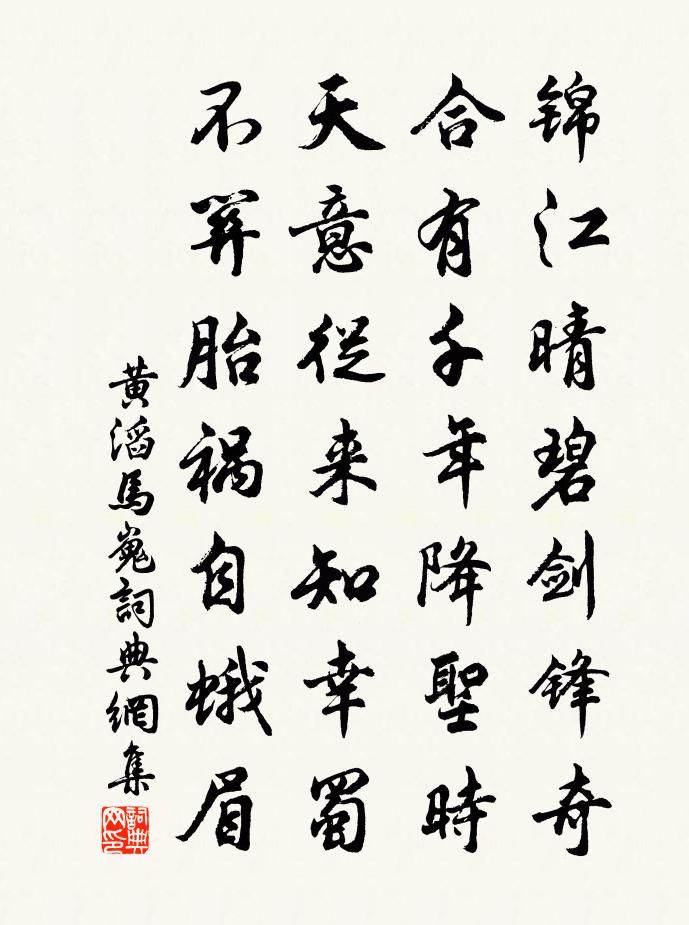 锦江晴碧剑锋奇
合有千年降聖時
天意従来知幸蜀
不关胎祸自蛾眉
黄滔馬嵬詞典網集
詞典网印